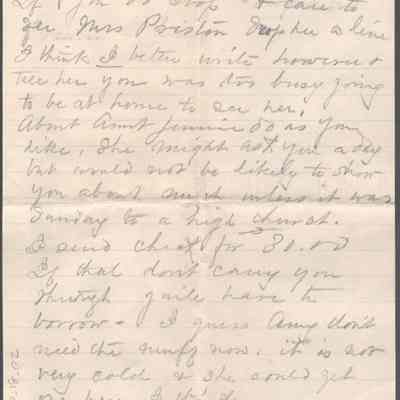 If you do stop & care to
see Mrs Priston drop her a line
I think I better write however &
tell her you was too busy going
to be at home to see her.
About Aunt Jennie do as you
like. She might ask you a day
but would not be likely to show
you about much unless it was
Sunday to a high church.
I send check for 30.00
If that don't carry you
through you'le have to
borrow - I guess Amy don't
need the muff now. it is not
very cold & she could get